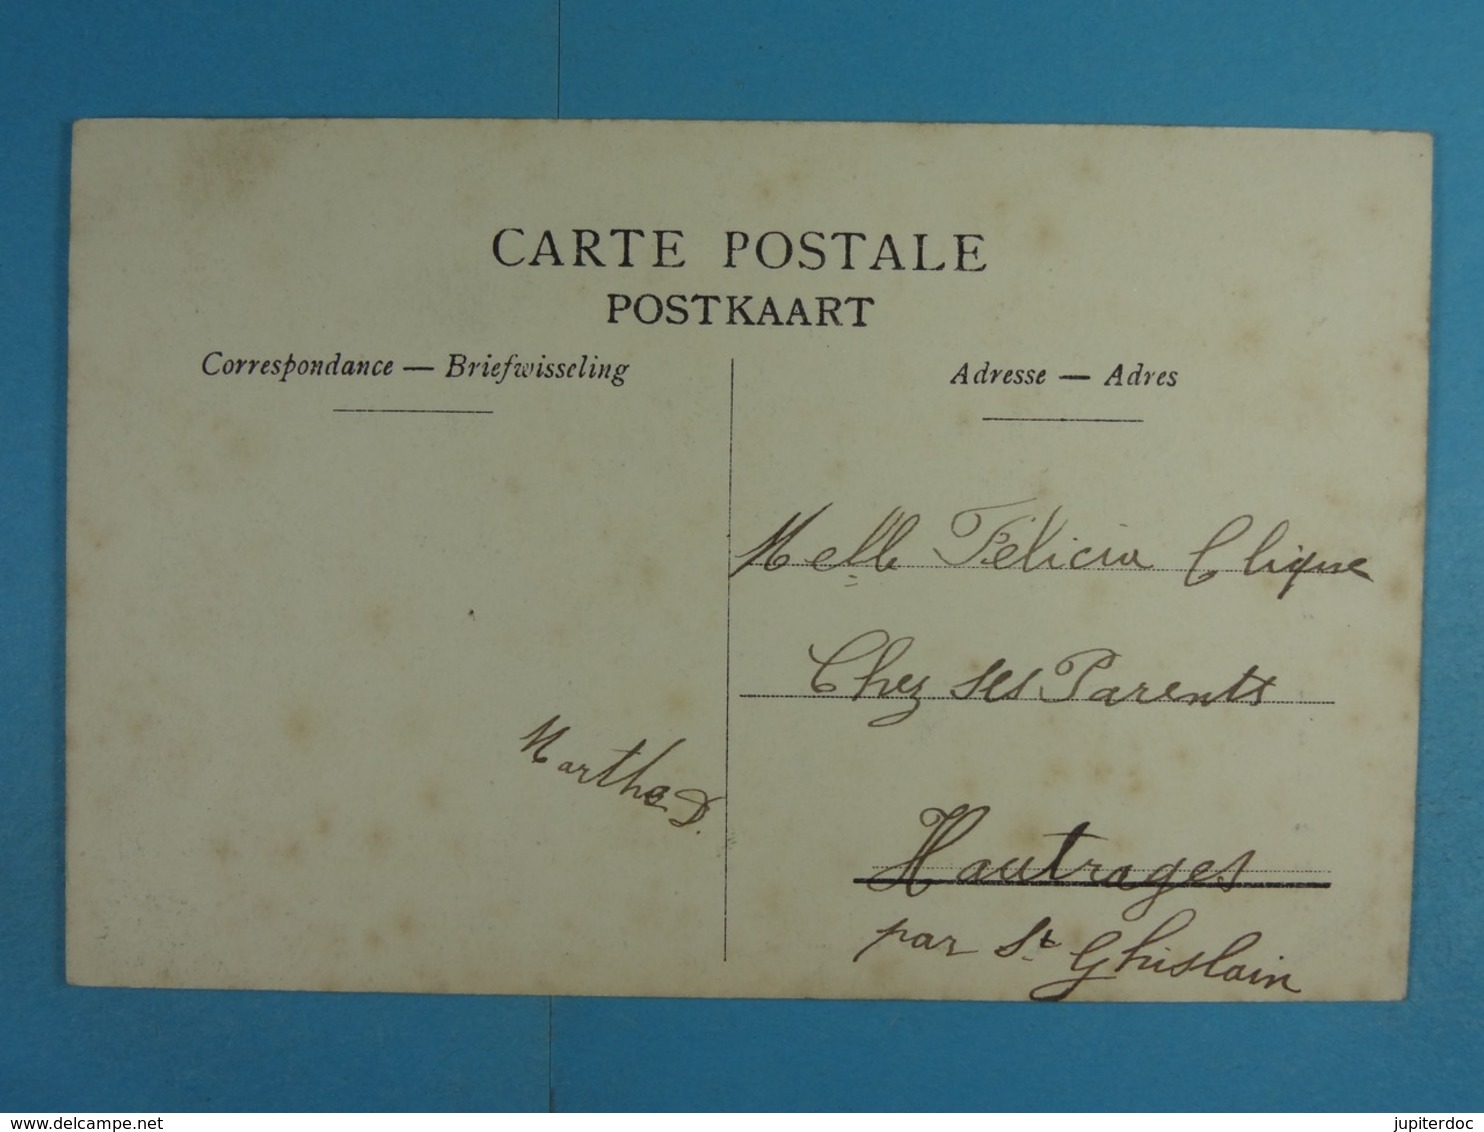 CARTE POSTALE
POSTKAART
Correspondance — Briefwisseling
Adresse — Adres
Melle Félicia Clique
Chez ses Parents
Martha D.
Hautrages
par St Ghislain
delcampe.net
jupiterdoc